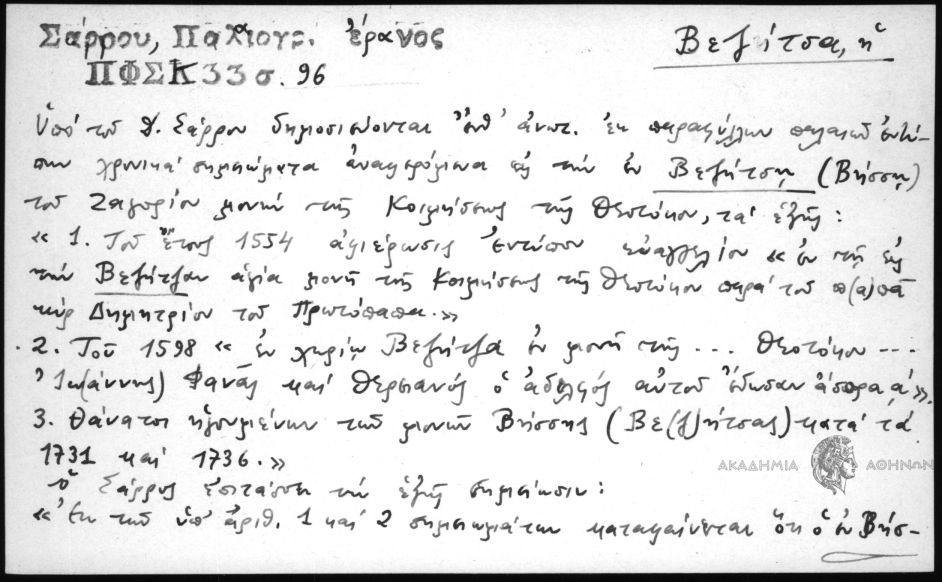 Σάρρου, Παλιογρ. ἔρανος
ΠΦΣΚ33 σ. 96
Βεζήτσα, ἡ
Ὑπὸ τοῦ Δ. Σάρρου δημοσιεύονται ἔνθ' ἀνωτ. ἐκ παραφύλλων παλαιῶν ἐντύ-
πων χρονικὰ σημειώματα ἀναφερόμενα εἰς τὴν ἐν Βεζήτσῃ (Βήσσῃ)
τοῦ Ζαγορίου μονὴν τῆς Κοιμήσεως τῆς Θεοτόκου, τὰ ἑξῆς:
« 1. Τοῦ ἔτους 1554 ἀφιέρωσις ἐντύπου εὐαγγελίου « ἐν τῇ εἰς
τὴν Βεζήτζαν ἁγία μονῇ τῆς Κοιμήσεως τῆς Θεοτόκου παρὰ τοῦ π(α)πᾶ
κὺρ Δημητρίου τοῦ Πρωτόπαπα.»
2. Τοῦ 1598 « ἐν χωρίῳ Βεζήτζα ἐν μονῇ τῆς ... Θεοτόκου ...
Ἰω(άννης) Φανᾶς καὶ Θερσιανός ὁ ἀδελφός αὐτοῦ ἔδωσαν ἄσπρα,α'».
3. Θάνατοι ἡγουμένων τῶν μονῶν Βήσσης (Βε(ζ)ήτσας) κατὰ τὰ
1731 καὶ 1736.»
ὁ Σάρρος ἐπιτάσσει τὴν ἑξῆς σημείωσιν:
«Ἐκ τῶν ὑπ' ἀριθ. 1 καὶ 2 σημειωμάτων καταφαίνεται ὅτι ὁ ἐν Βήσ-
ΑΚΑΔΗΜΙΑ ΑΘΗΝΩΝ